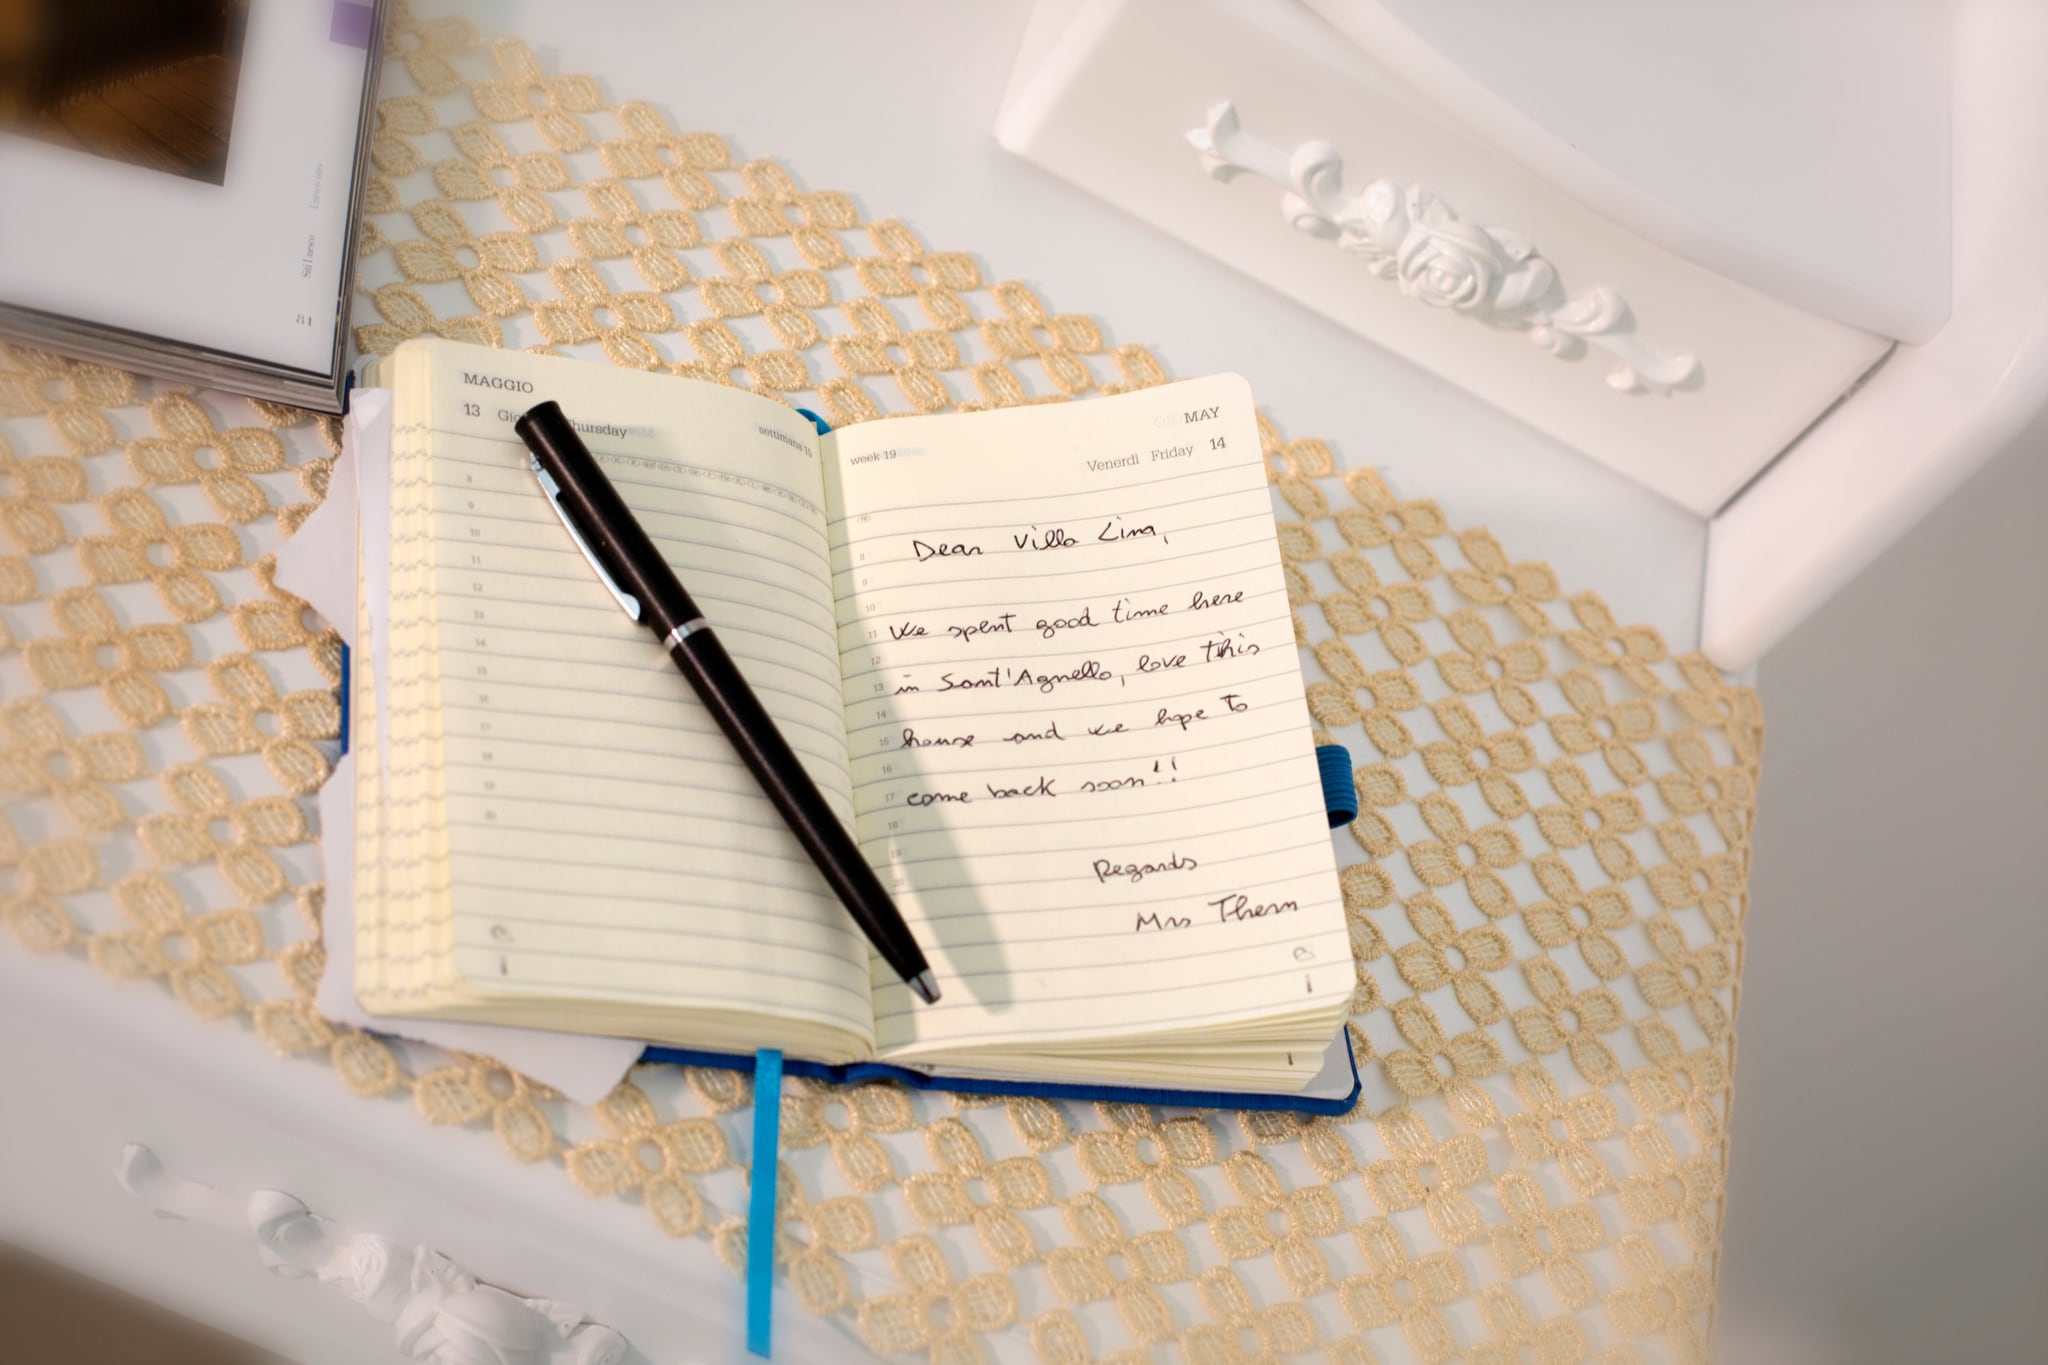 Siti Unesco
81
MAGGIO
13 Thursday
settimana 19
8
9
10
11
12
13
14
15
16
17
18
19
20
MAY
week 19
Venerdì Friday 14
8
9
10
11
12
13
14
15
16
17
18
19
20
Dear Villa Lina,
We spent good time here
in Sant'Agnello, love this
house and we hope to
come back soon!!
Regards
Mrs Thern